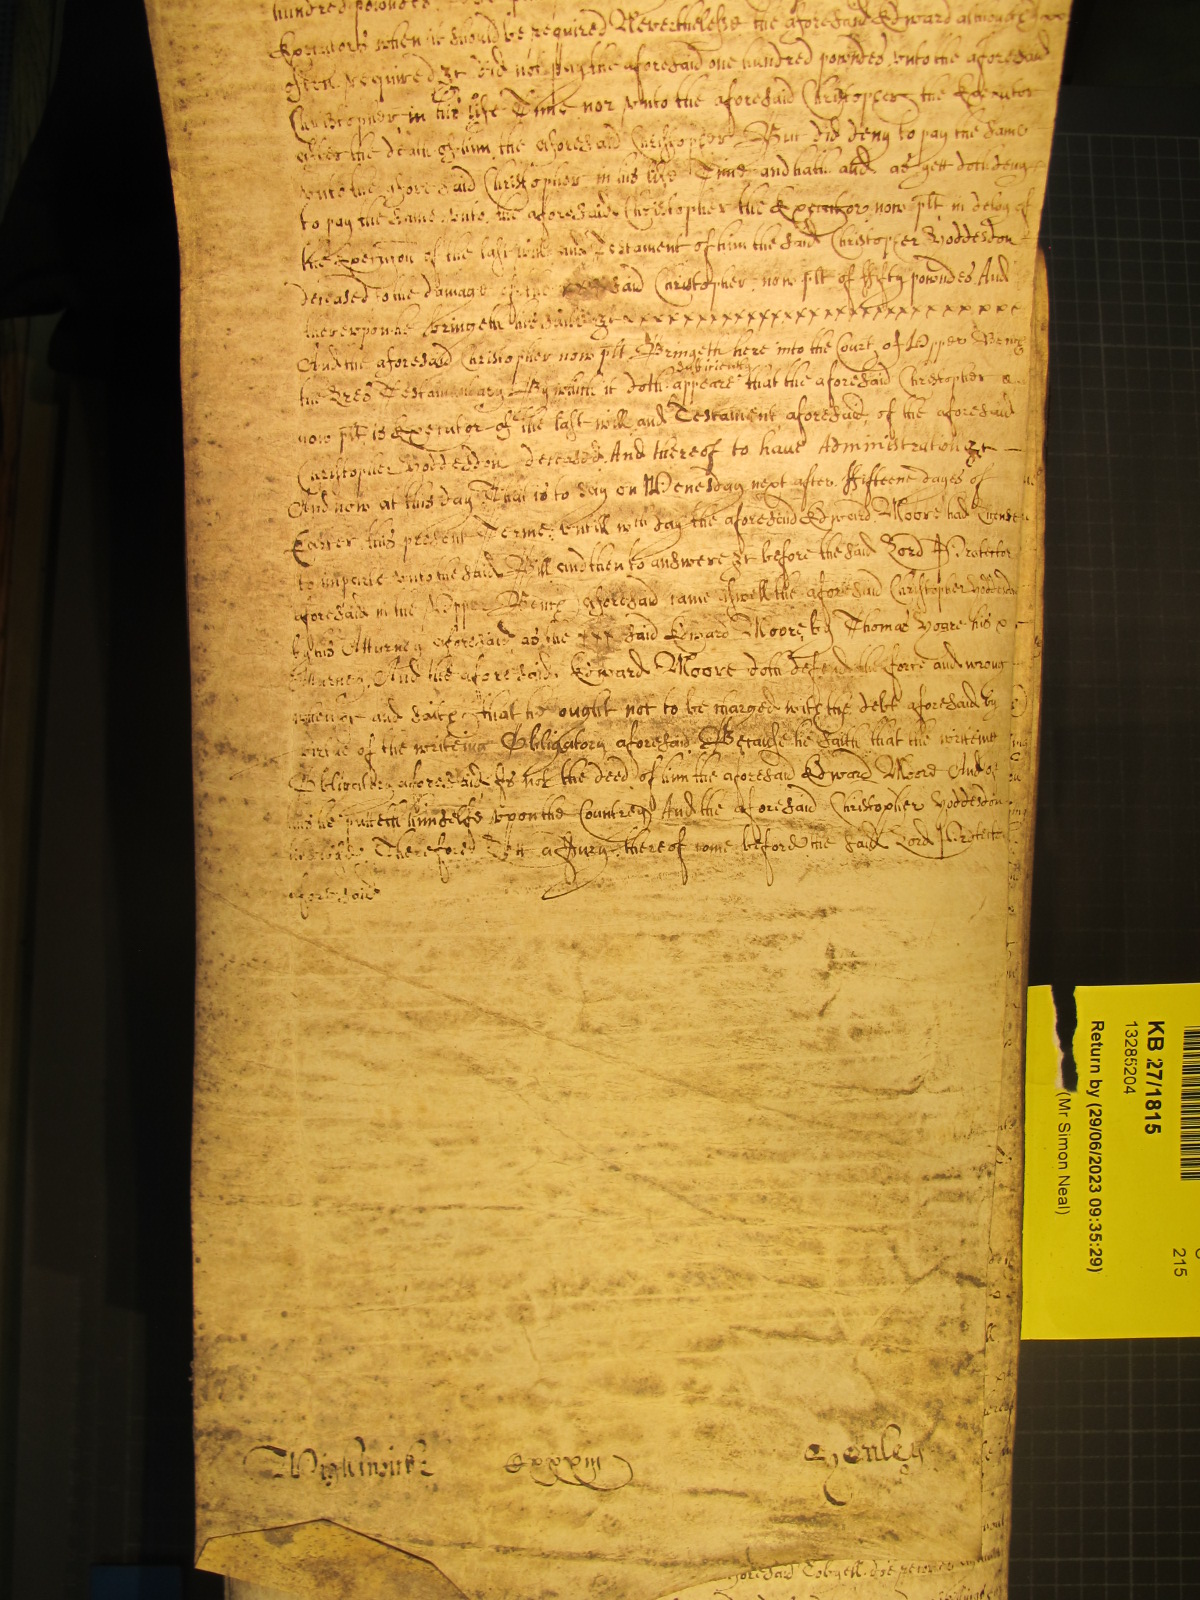 hundred powndes
Executors when it should be required Neverthelesse the aforesaid Edward although
often required &c did not pay the aforesaid one hundred powndes vnto the aforesaid
Christopher in his life Time nor vnto the aforesaid Christopher the Executor
after the death of him the aforesaid Christopher But did deny to pay the same
vnto the aforesaid Christopher in his life Time and hath and as yett doth deny
to pay the same vnto the aforesaid Christopher the Executor now plt in delay of
the Execution of the last will and Testament of him the said Christopher Hoddesdon
deceased To the damage of the said Christopher now plt of Fifty powndes And
therevpon he bringeth the suite &c x x x x x x x x x x x x x x x x x x x x x
And the aforesaid Christopher now plt Bringeth here into the Court of Vpper Bench
the Lres Testamentary By which it doth sufficiently appeare that the aforesaid Christopher
now plt is Executor of the last will and Testament aforesaid of the aforesaid
Christopher Hoddesdon deceased And thereof to have Administration &c
And now at this day That is to say on Wenesday next after Fifteene dayes of
Easter this present Terme vntill wch day the aforesaid Edward Moore had
to imparle vnto the said Bill and then to answere &c before the said Lord Protector
aforesaid in the Vpper Bench aforesaid came aswell the aforesaid Christopher Hoddesdon
by his Attorney aforesaid as the said Edward Moore by Thomas his x
Attorney And the aforesaid Edward Moore doth defend the force and wrong
when &c and saith That he ought not to be charged with the debt aforesaid by
virtue of the writeing Obligatory aforesaid Because he saith that the writeing
Obligatory aforesaid Is not the deed of him the aforesaid Edward Moore And of
this he putteth himselfe vpon the Countrey And the aforesaid Christopher Hoddesdon
Therefore Lett a Jury thereof come before the said Lord Protector
aforesaid
Wightwicke Cxxxiii Henley
aforesaid
KB 27/1815
13285204
Return by (29/06/2023 09:35:29)
(Mr Simon Neal)
215